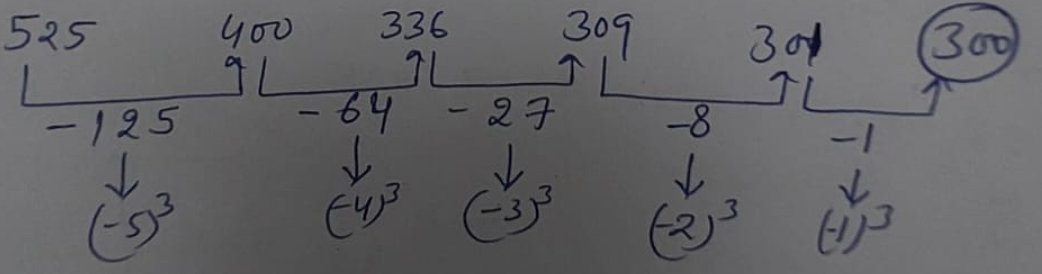 525 400 336 309 301 300
-125 -64 -27 -8 -1
(-5)³ (-4)³ (-3)³ (-2)³ (-1)³